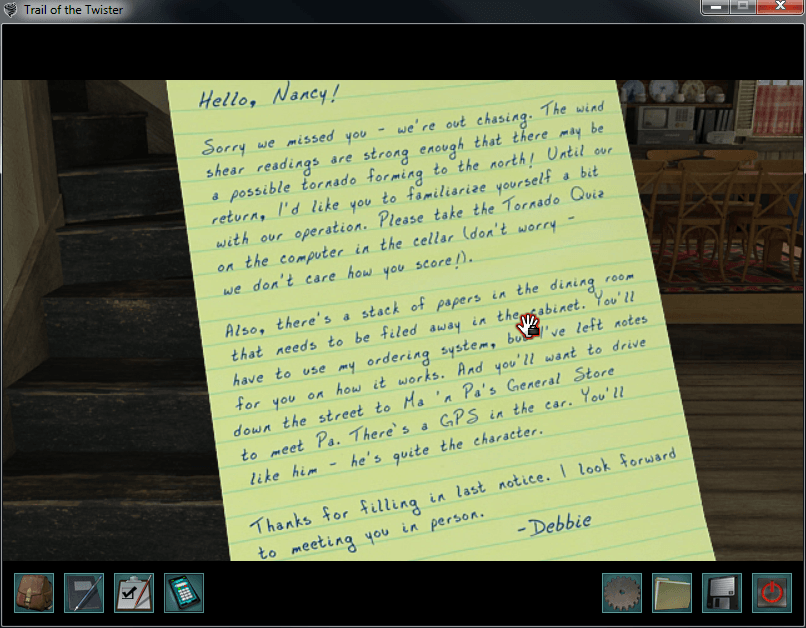 Trail of the Twister
Hello, Nancy!
Sorry we missed you - we're out chasing. The wind
shear readings are strong enough that there may be
a possible tornado forming to the north! Until our
return, I'd like you to familiarize yourself a bit
with our operation. Please take the Tornado Quiz
on the computer in the cellar (don't worry -
we don't care how you score!).
Also, there's a stack of papers in the dining room
that needs to be filed away in the cabinet. You'll
have to use my ordering system, but I've left notes
for you on how it works. And you'll want to drive
down the street to Ma 'n Pa's General Store
to meet Pa. There's a GPS in the car. You'll
like him - he's quite the character.
Thanks for filling in last notice. I look forward
to meeting you in person.
-Debbie